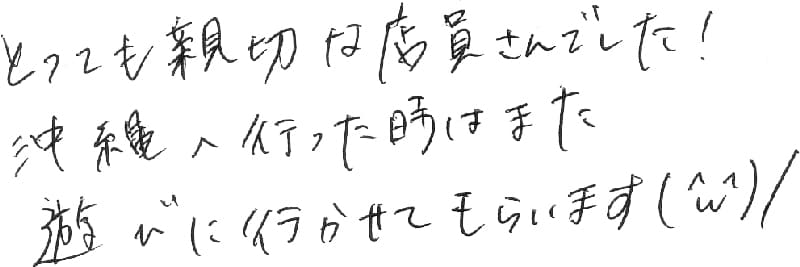 とっても親切な店員さんでした！
沖縄へ行った時はまた
遊びに行かせてもらいます(^ω^)/